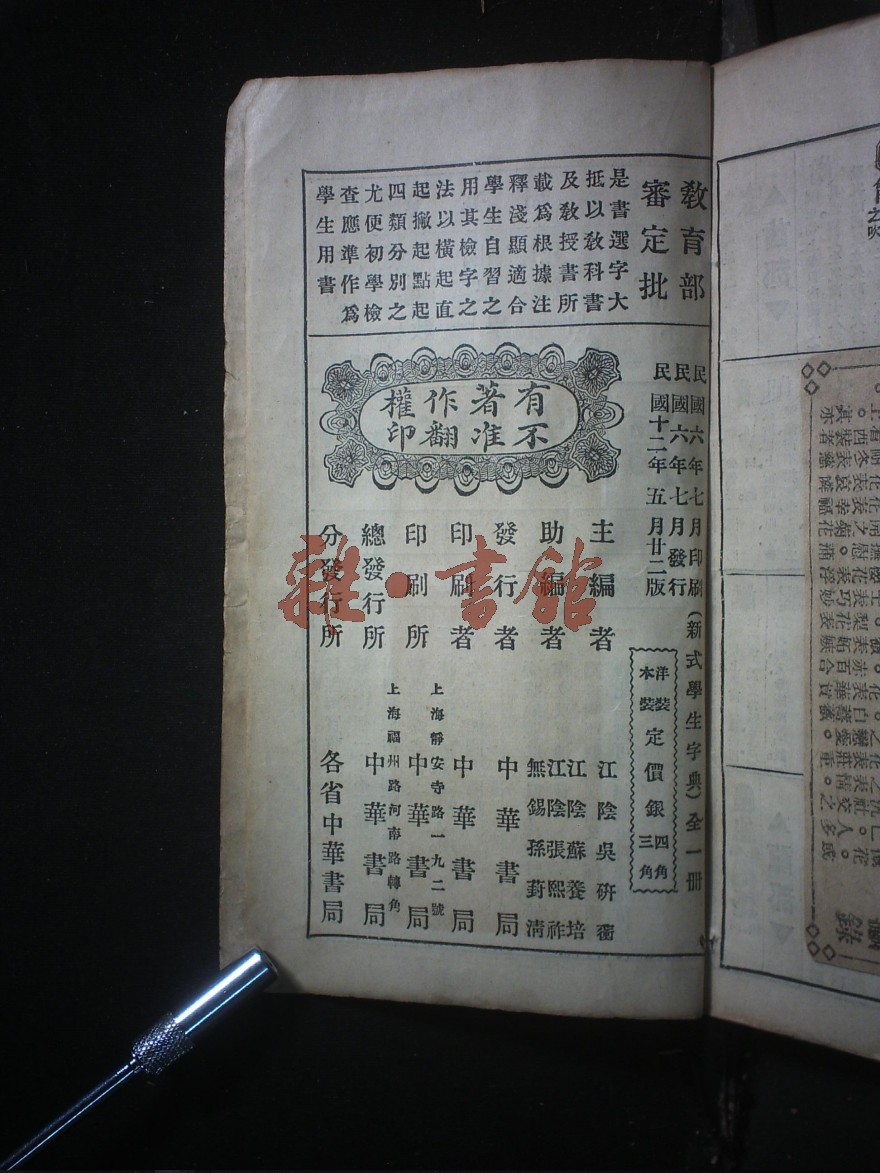 教育部
審定批
是書選字大
抵以教科書
及教授書所
載為根據注
釋淺顯適合
學生自習之
用其檢字之
法以橫起直
起撇起點起
四類分別之
尤便初學檢
查應準作為
學生用書
民國六年七月印刷
民國六年七月發行
民國十二年五月廿二版
(新式學生字典)全一冊
洋裝
本裝
定價銀
四角
三角
有著作權
不准翻印
主編者 江陰吳研蘅
助編者 江陰蘇養培
江陰張熙祚
無錫孫葑清
發行者 中華書局
印刷者 中華書局
上海靜安寺路一九二號
印刷所 中華書局
上海福州路河南路轉角
總發行所 中華書局
分發行所 各省中華書局
雜·書館